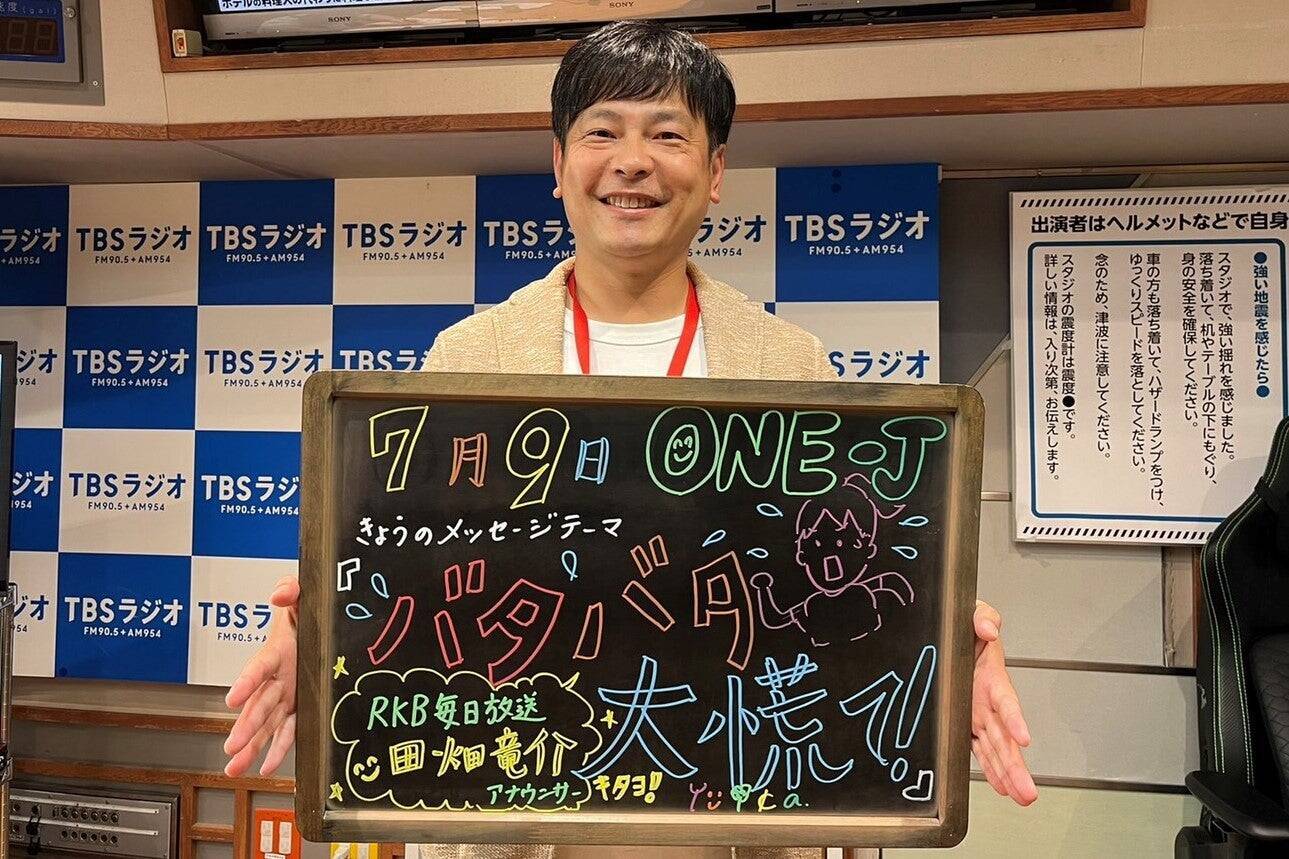 SONY
SONY
TBSラジオ
FM90.5+AM954
TBSラジオ
FM90.5+AM954
TBSラジオ
FM90.5+AM954
TBSラジオ
FM90.5+AM954
TBSラジオ
FM90.5+AM954
TBSラジオ
FM90.5+AM954
TBSラジオ
FM90.5+AM954
TBSラジオ
FM90.5+AM954
TBSラジオ
FM90.5+AM954
出演者はヘルメットなどで自身
●強い地震を感じたら●
スタジオで、強い揺れを感じました。
落ち着いて、机やテーブルの下にもぐり、
身の安全を確保してください。
車の方も落ち着いて、ハザードランプをつけ、
ゆっくりスピードを落としてください。
念のため、津波に注意してください。
スタジオの震度計は震度●です。
詳しい情報は、入り次第、お伝えします。
7月9日 ONE-J
きょうのメッセージテーマ
『バタバタ
大慌て!』
RKB毎日放送
田畑竜介
アナウンサー キタヨ!